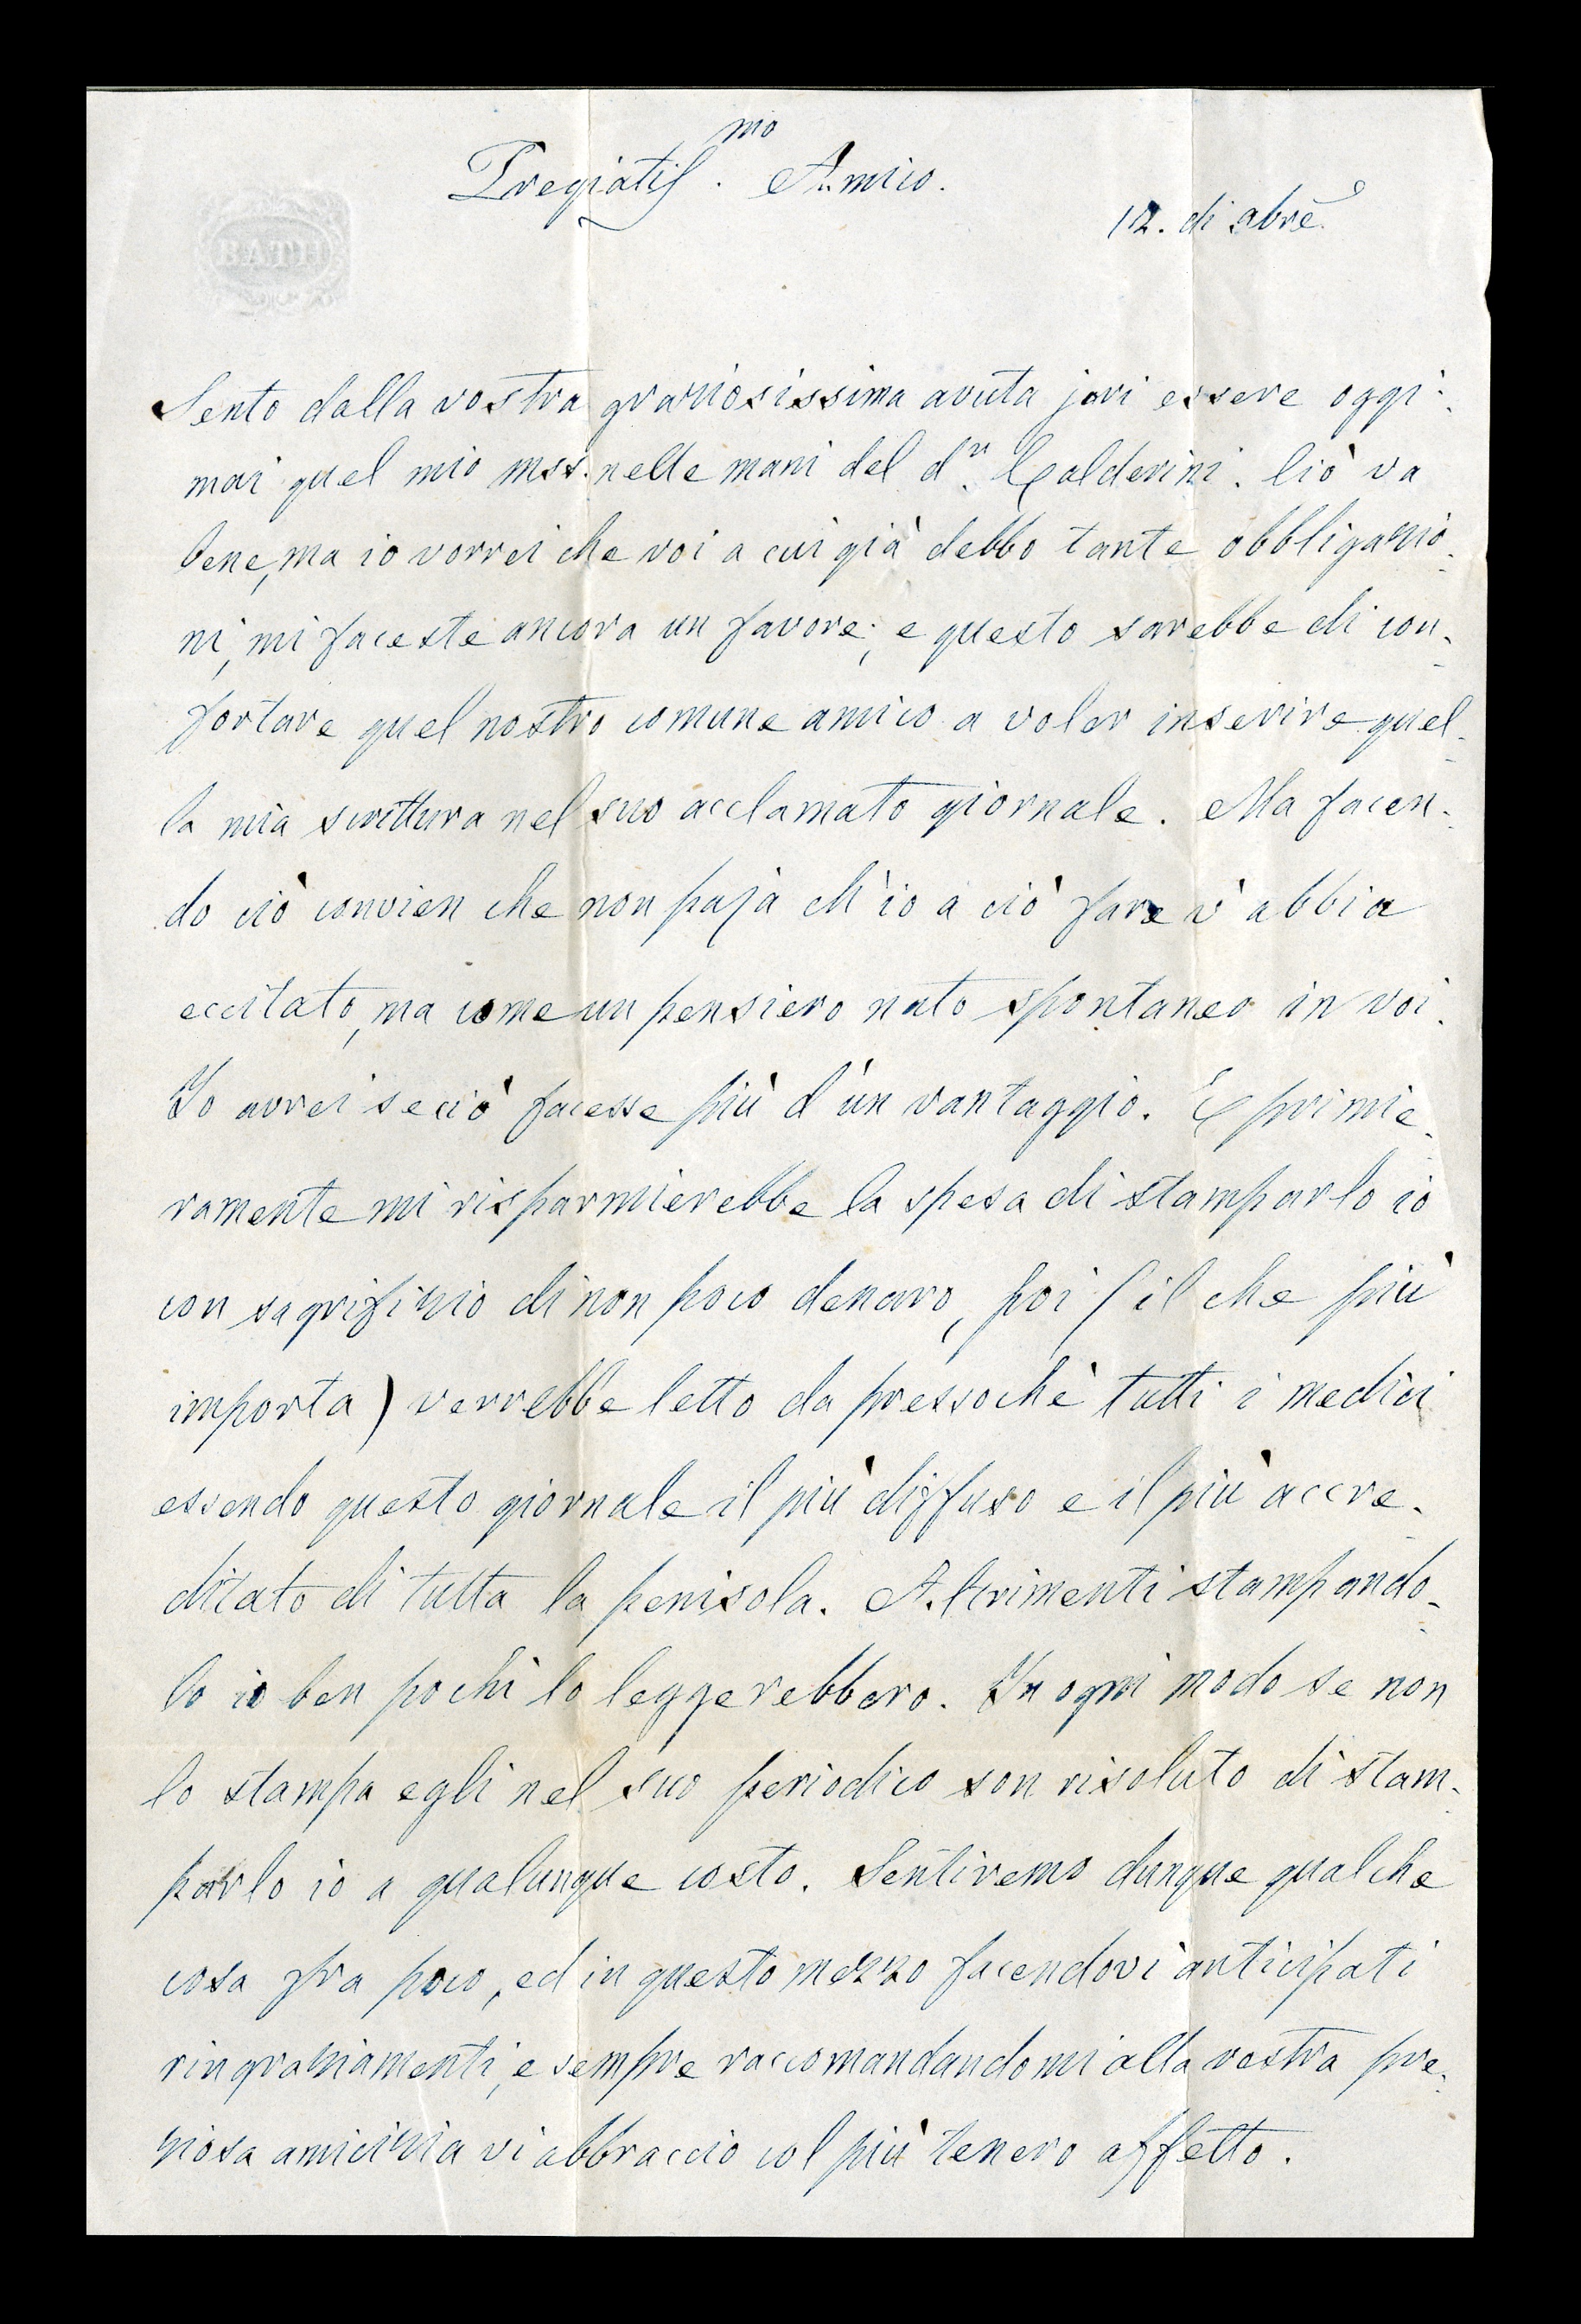 Pregiatiss.mo Amico.
12. di 9bre.
BATH
Sento dalla vostra graziosissima avuta jeri essere oggi-
mai quel mio mss. nelle mani del d.r Calderini. Ciò va
bene, ma io vorrei che voi a cui già debbo tante obbligazio-
ni, mi faceste ancora un favore; e questo sarebbe di con-
fortare quel nostro comune amico a voler inserire quel-
la mia scrittura nel suo acclamato giornale. Ma facen-
do ciò convien che non paja ch'io a ciò fare v'abbia
eccitato, ma come un pensiero nato spontaneo in voi.
Io avrei se ciò facesse più d'un vantaggio. E primie-
ramente mi risparmierebbe la spesa di stamparlo io
con sagrifizio di non poco denaro, poi (il che più
importa) verrebbe letto da pressochè tutti i medici
essendo questo giornale il più diffuso e il più accre-
ditato di tutta la penisola. Altrimenti stampando-
lo io ben pochi lo leggerebbero. In ogni modo se non
lo stampa egli nel suo periodico son risoluto di stam-
parlo io a qualunque costo. Sentiremo dunque qualche
cosa fra poco, ed in questo mezzo facendovi anticipati
ringraziamenti, e sempre raccomandandomi alla vostra pre-
ziosa amicizia vi abbraccio col più tenero affetto.